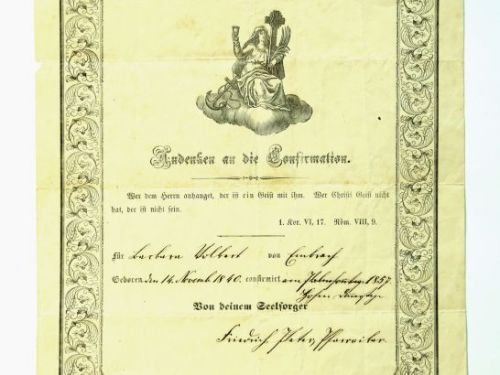 Andenken an die Confirmation.
Wer dem Herrn anhanget, der ist ein Geist mit ihm. Wer Christi Geist nicht
hat, der ist nicht sein.
1. Kor. VI, 17. Röm. VIII, 9.
Für Barbara Volkert von Embrach
Geboren den 14. Novemb 1840. confirmirt am Palmsonntag 1857.
Von deinem Seelsorger
Friedrich Peter